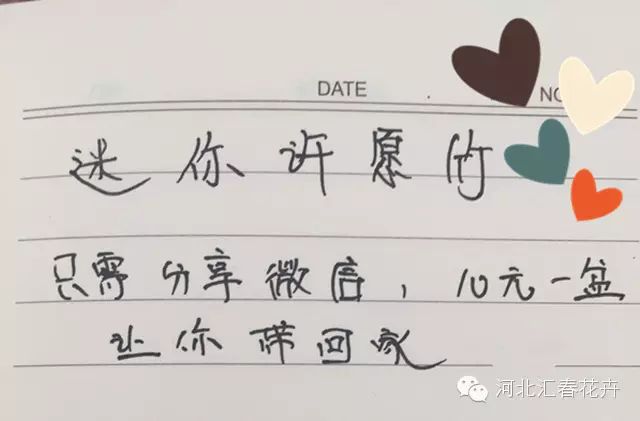 DATE
NO
迷你许愿竹
只需分享微信,10元一盆
让你带回家
河北汇春花卉